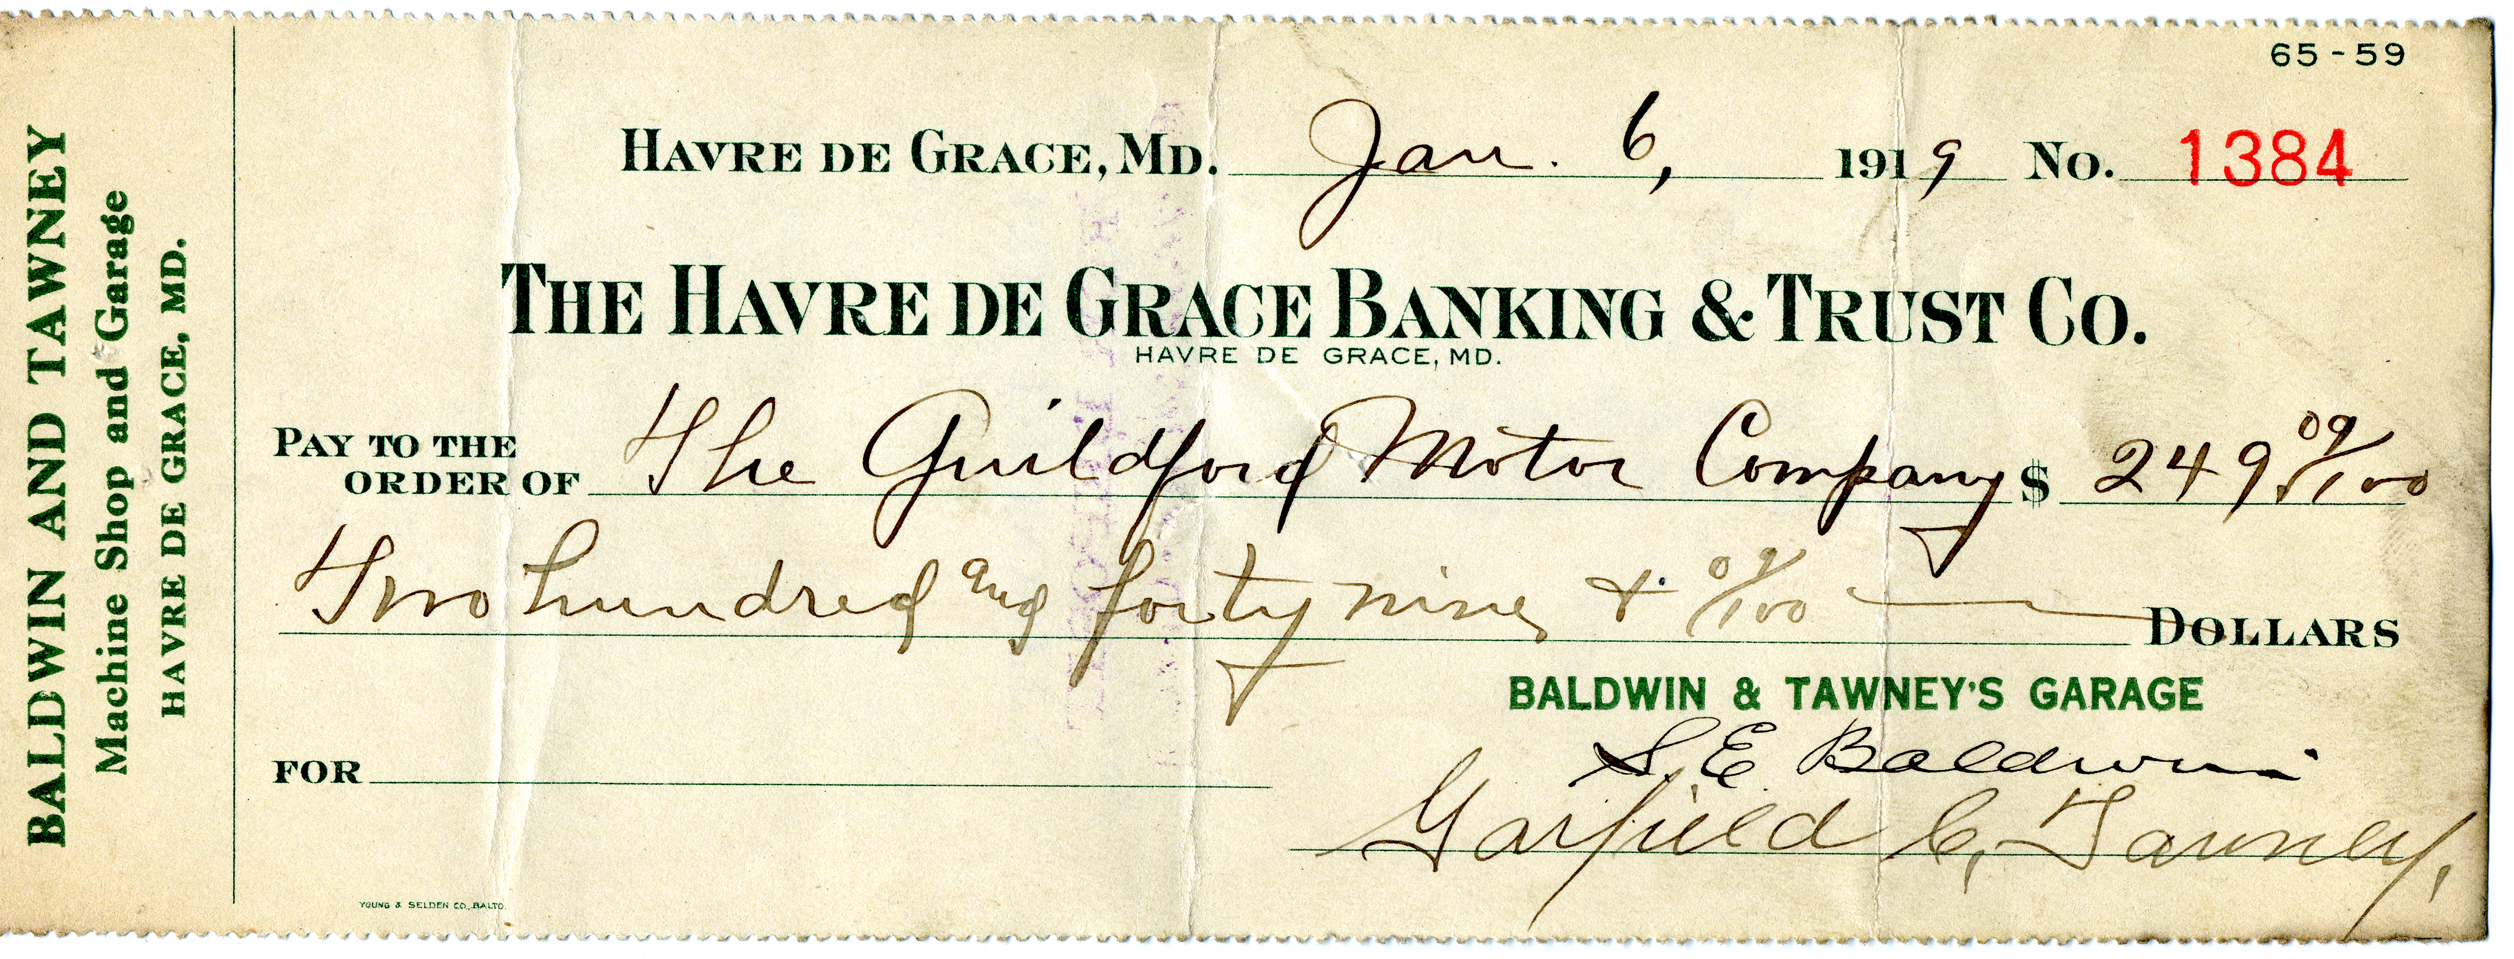 BALDWIN AND TAWNEY
Machine Shop and Garage
HAVRE DE GRACE, MD.
65-59
HAVRE DE GRACE, MD. Jan. 6, 1919 No. 1384
THE HAVRE DE GRACE BANKING & TRUST CO.
HAVRE DE GRACE, MD.
PAY TO THE
ORDER OF The Guildford Motor Company $ 249 09/100
Two hundred and forty nine & 09/100 DOLLARS
BALDWIN & TAWNEY'S GARAGE
S. E. Baldwin
FOR
Garfield C. Tawney.
YOUNG & SELDEN CO., BALTO.